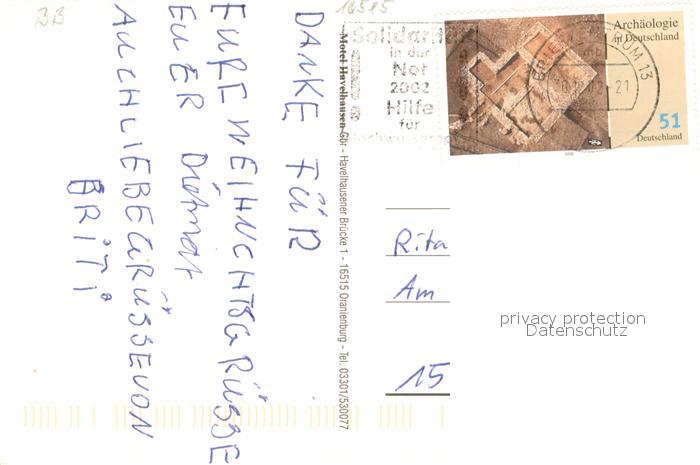 BB
16515
DANKE FÜR
EURE WEIHNCHTSGRÜSSE
EUER Dietmar
AUCH LIEBE GRÜSSE VON
BRiTi
Motel Havelhausen Gbr - Havelhausener Brücke 1 - 16515 Oranienburg - Tel. 03301/530077
Solidarität
in der
Not
2002
Hilfe
für
Archäologie
in Deutschland
51
Deutschland
BRIEFZENTRUM 13
mb
-21
Rita
Am
15
privacy protection
Datenschutz